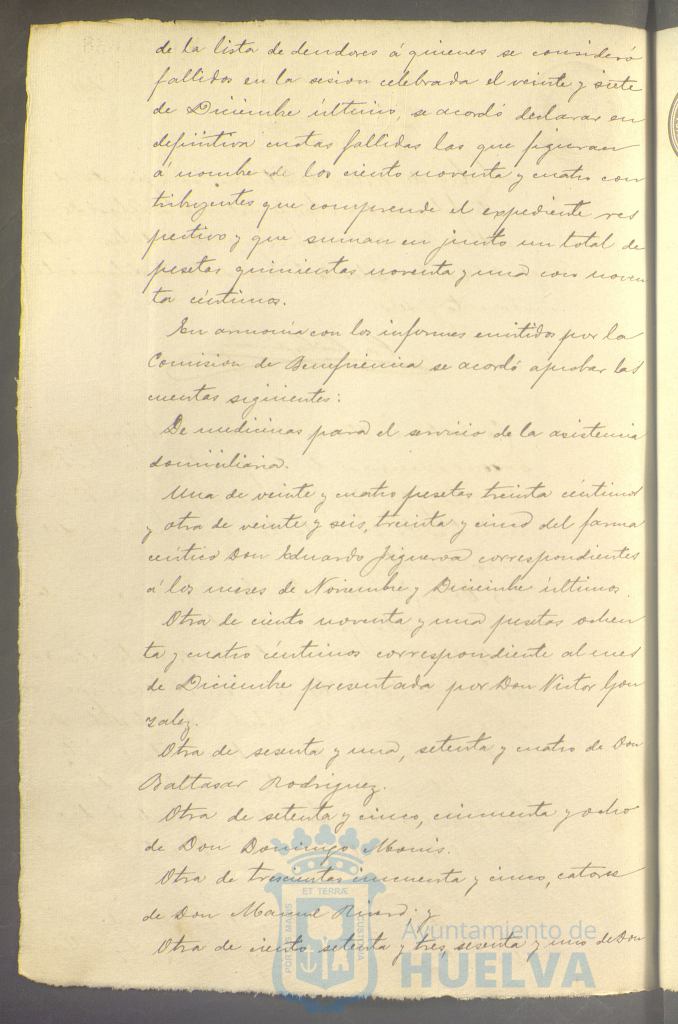 de la lista de deudores á quienes se consideró
fallidos en la sesion celebrada el veinte y siete
de Diciembre último, se acordó declarar en
definitiva cuotas fallidas las que figuran
á nombre de los ciento noventa y cuatro con
tribuyentes que comprende el expediente res
pectivo y que suman en junto un total de
pesetas quinientas noventa y una con noven
ta céntimos.
En armonía con los informes emitidos por la
Comision de Beneficencia se acordó aprobar las
cuentas siguientes:
De medicinas para el servicio de la asistencia
domiciliaria.
Una de veinte y cuatro pesetas treinta céntimos
y otra de veinte y seis, treinta y cinco del farma
céutico Don Eduardo Figueroa correspondientes
á los meses de Noviembre y Diciembre últimos.
Otra de ciento noventa y una pesetas ochen
ta y cuatro céntimos correspondiente al mes
de Diciembre presentada por Don Victor Gon
zalez.
Otra de sesenta y una, setenta y cuatro de Don
Baltasar Rodriguez.
Otra de setenta y cinco, cincuenta y ocho
de Don Domingo
Otra de trescientas cincuenta y cinco, catorce
de Don Manuel y
Otra de ciento setenta y tres, sesenta y uno de Don
PORTUS MARIS ET TERRÆ CUSTODIA
Ayuntamiento de
HUELVA